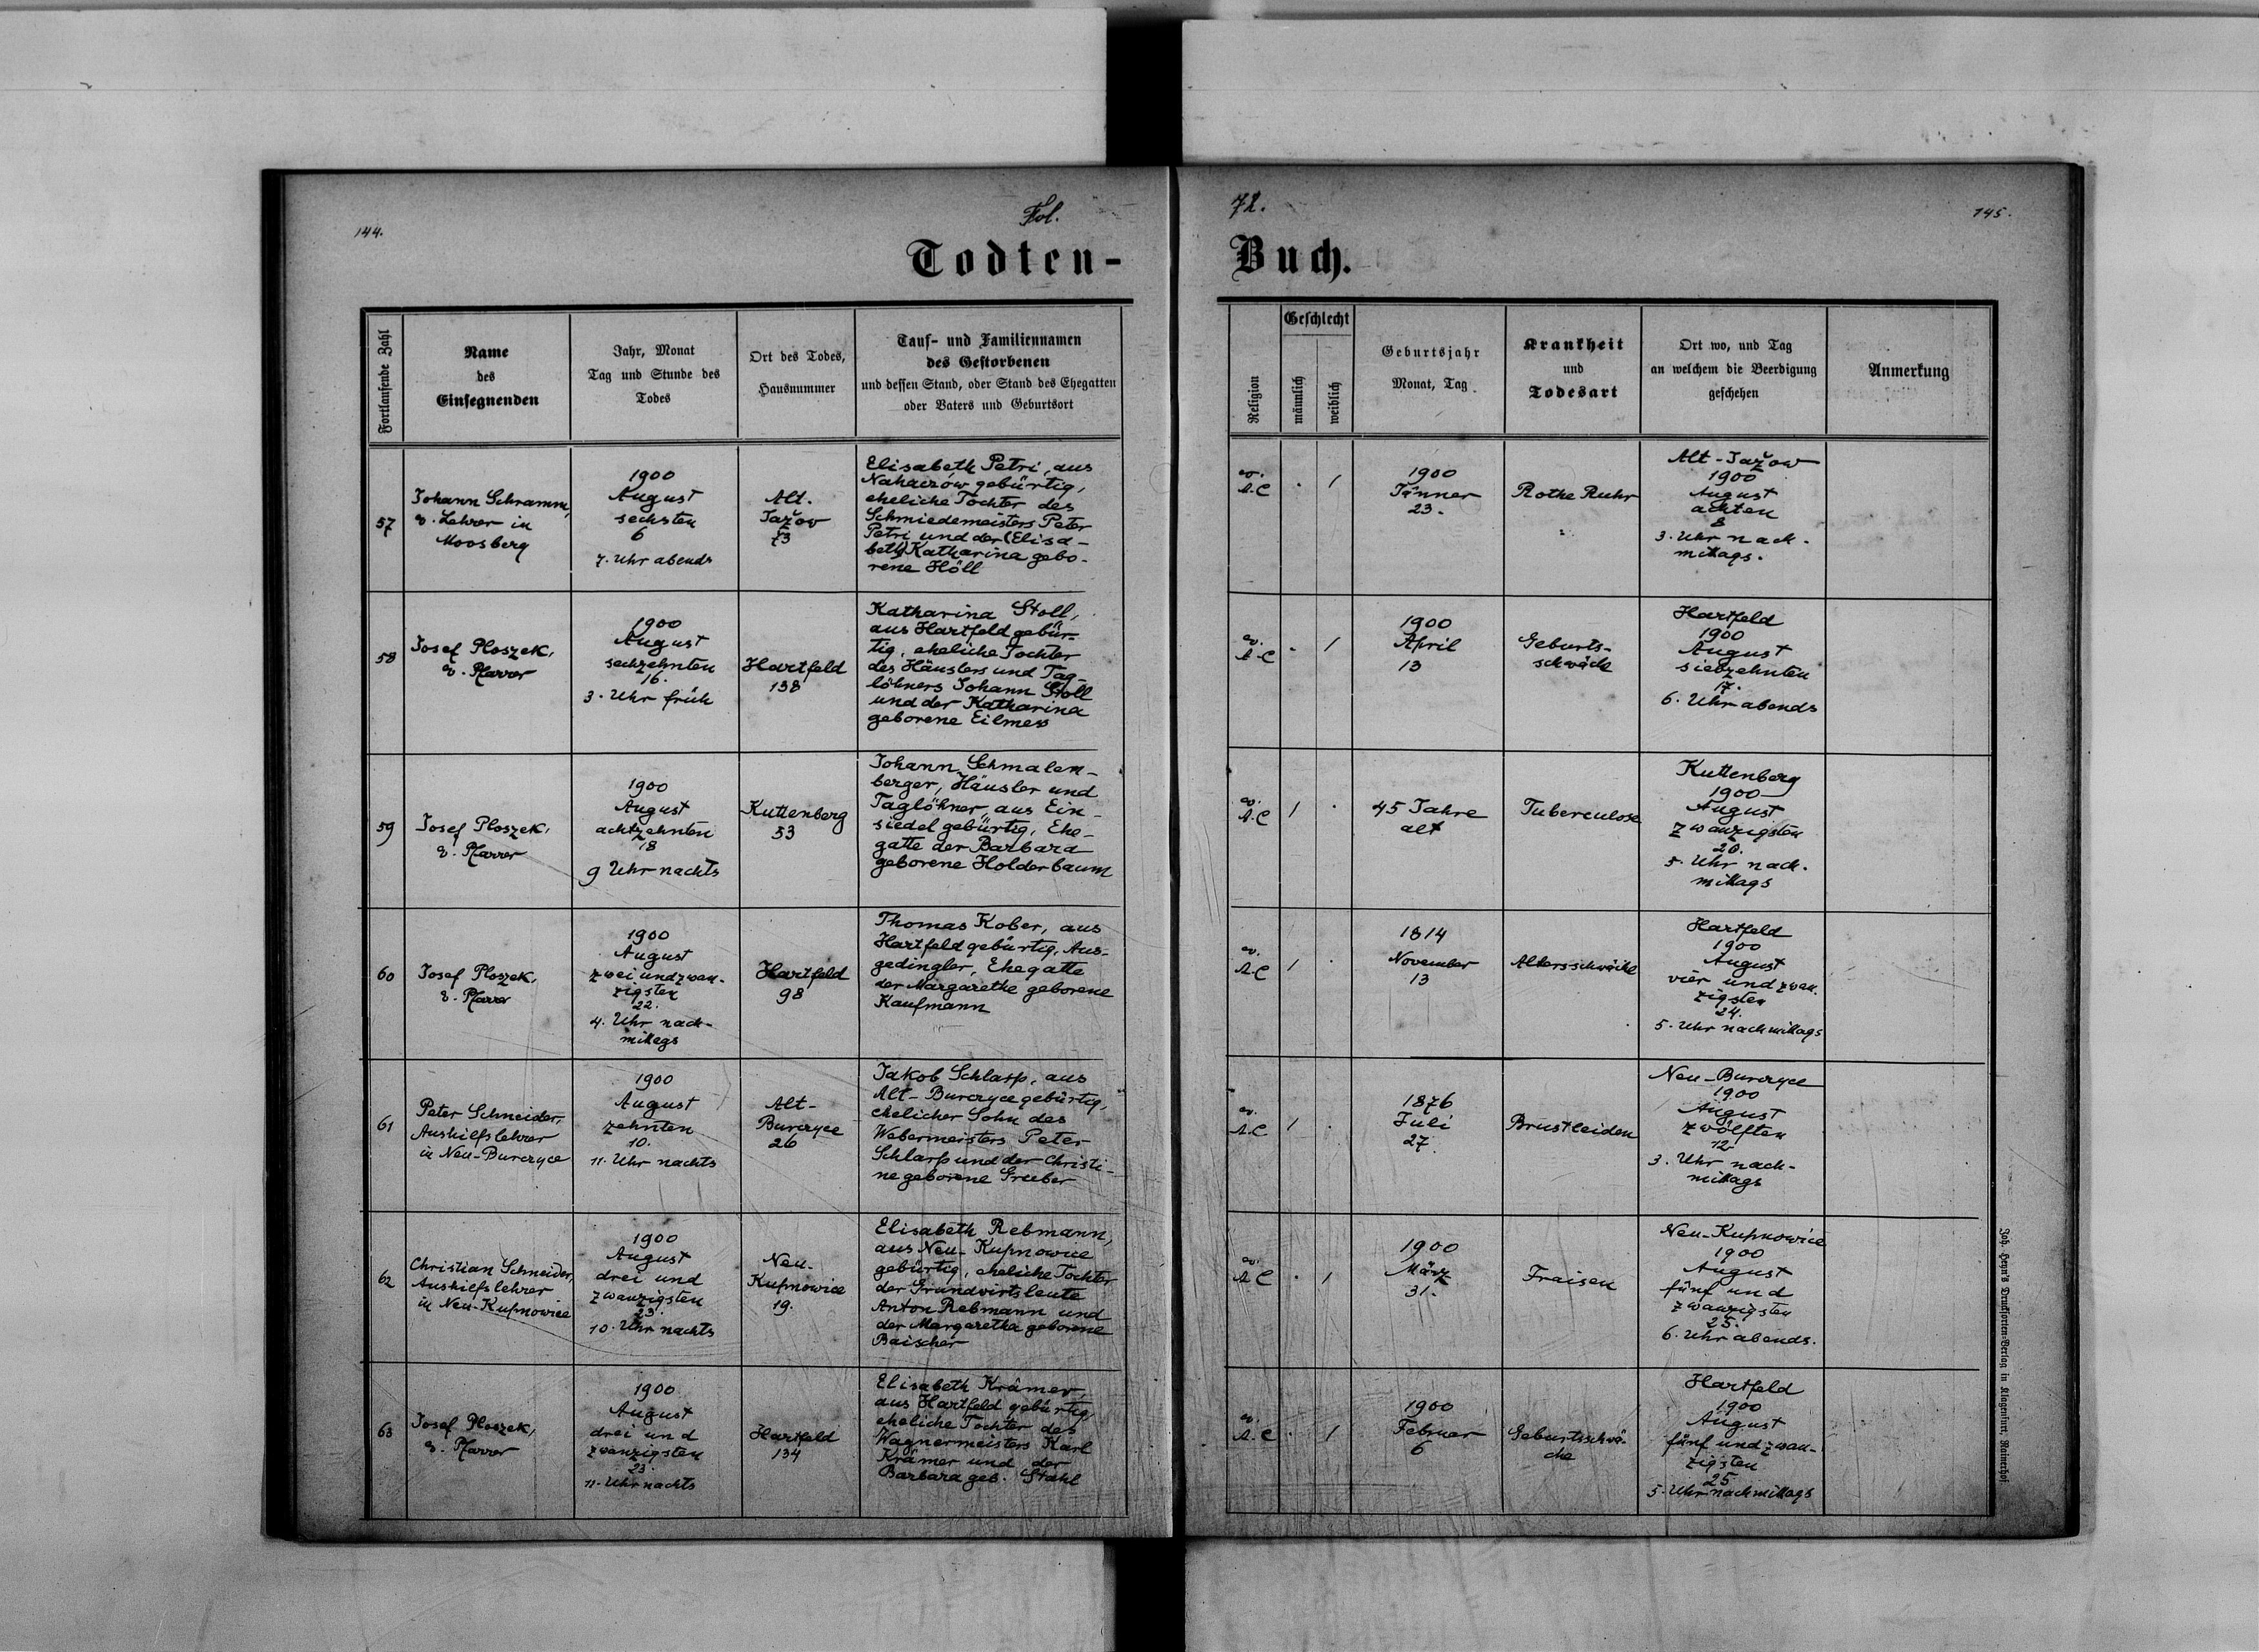 144.
Fol.
72.
145.
Todten-
Buch.
Fortlaufende Zahl
Name
des
Einsegnenden
Jahr, Monat
Tag und Stunde des
Todes
Ort des Todes,
Hausnummer
Tauf- und Familiennamen
des Gestorbenen
und dessen Stand, oder Stand des Ehegatten
oder Vaters und Geburtsort
Religion
Geschlecht
männlich
weiblich
Geburtsjahr
Monat, Tag
Krankheit
und
Todesart
Ort wo, und Tag
an welchem die Beerdigung
geschehen
Anmerkung
57
Johann Schramm,
ev. Lehrer in
Moosberg
1900
August
sechsten
6
7. Uhr abends
Alt-
Jažov
73
Elisabeth Petri, aus
gebürtig,
eheliche Tochter des
Schmiedemeisters Peter
Petri und der (Elisa-
beth) Katharina gebo-
rene Höll
ev.
A.C
. 1
1900
Jänner
23.
Rothe Ruhr
Alt-Jažow
1900
August
achten
8
3. Uhr nach-
mittags.
58
Josef Ploszek,
ev. Pfarrer
1900
August
sechzehnten
16.
3. Uhr früh
Hartfeld
138
Katharina Stoll,
aus Hartfeld gebür-
tig, eheliche Tochter
des Häuslers und Tag-
löhners Johann Stoll
und der Katharina
geborene Eilmess
ev.
A.C
. 1
1900
April
13
Geburts-
schwäche
Hartfeld
1900
August
siebzehnten
17.
6. Uhr abends
59
Josef Ploszek,
ev. Pfarrer
1900
August
achtzehnten
18
9 Uhr nachts
Kuttenberg
53
Johann Schmalen-
berger, Häusler und
Taglöhner, aus Ein-
siedel gebürtig, Ehe-
gatte der Barbara
geborene Holderbaum
ev.
A.C
1 .
45 Jahre
alt
Tuberculose
Kuttenberg
1900
August
zwanzigsten
20.
5. Uhr nach-
mittags
60
Josef Ploszek,
ev. Pfarrer
1900
August
zwei und zwan-
zigsten
22.
4. Uhr nach-
mittags
Hartfeld
98
Thomas Kober, aus
Hartfeld gebürtig, Aus-
gedingler, Ehegatte
der Margarethe geborene
Kaufmann
ev.
A.C
1 .
1814
November
13
Altersschwäche
Hartfeld
1900
August
vier und zwan-
zigsten
24.
5. Uhr nachmittags
61
Peter Schneider,
Aushilfslehrer
in Neu-Burczyce
1900
August
zehnten
10.
11. Uhr nachts
Alt-
Burczyce
26
Jakob Schlarp, aus
Alt-Burczyce gebürtig,
ehelicher Sohn des
Webermeisters Peter
Schlarp und der Christi-
ne geborene Grueber
ev.
A.C
1 .
1876
Juli
27.
Brustleiden
Neu-Burczyce
1900
August
zwölften
12
3. Uhr nach-
mittags
62
Christian Schneider,
Aushilfslehrer
in Neu-Kupnowice
1900
August
drei und
zwanzigsten
23.
10. Uhr nachts
Neu-
Kupnowice
19.
Elisabeth Rebmann,
aus Neu-Kupnowice
gebürtig, eheliche Tochter
der Grundwirtsleute
Anton Rebmann und
der Margaretha geborene
Baischer
ev.
A.C
. 1
1900
März
31.
Fraisen
Neu-Kupnowice
1900
August
fünf und
zwanzigsten
25.
6. Uhr abends.
63
Josef Ploszek,
ev. Pfarrer
1900
August
drei und
zwanzigsten
23.
11. Uhr nachts
Hartfeld
134
Elisabeth Krämer,
aus Hartfeld gebürtig,
eheliche Tochter des
Wagnermeisters Karl
Krämer und der
Barbara geb. Stahl
ev.
A.C
. 1
1900
Februar
6
Geburtsschwä-
che
Hartfeld
1900
August
fünf und zwan-
zigsten
25
5. Uhr nachmittags
Joh. Heyn's Drucksorten-Verlag in Klagenfurt, Rainerhof.